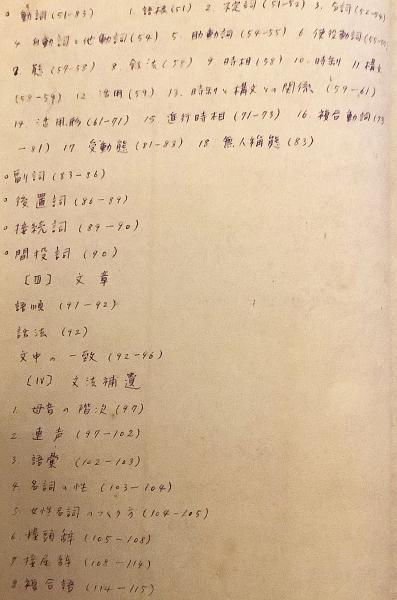 ○動詞 (51-83)  1. 語根 (51)  2. 不定詞 (51-52)  3. 分詞 (52-54)
4. 自動詞と他動詞 (54)  5. 助動詞 (54-55)  6. 使役動詞
7. 態 (57-58)  8. 叙法 (58)  9. 時相 (58)  10. 時制  11. 構文
(58-59)  12. 活用 (59)  13. 時制と構文との関係 (59-61)
14. 活用形 (61-71)  15. 進行時相 (71-73)  16. 複合動詞 (73
-81)  17. 受動態 (81-83)  18. 無人称態 (83)
○副詞 (83-86)
○後置詞 (86-89)
○接続詞 (89-90)
○間投詞 (90)
[III] 文章
語順 (91-92)
話法 (92)
文中の一致 (92-96)
[IV] 文法補遺
1. 母音の階次 (97)
2. 連声 (97-102)
3. 語彙 (102-103)
4. 名詞の性 (103-104)
5. 女性名詞のつくり方 (104-105)
6. 接頭辞 (105-108)
7. 接尾辞 (108-114)
8. 複合語 (114-115)